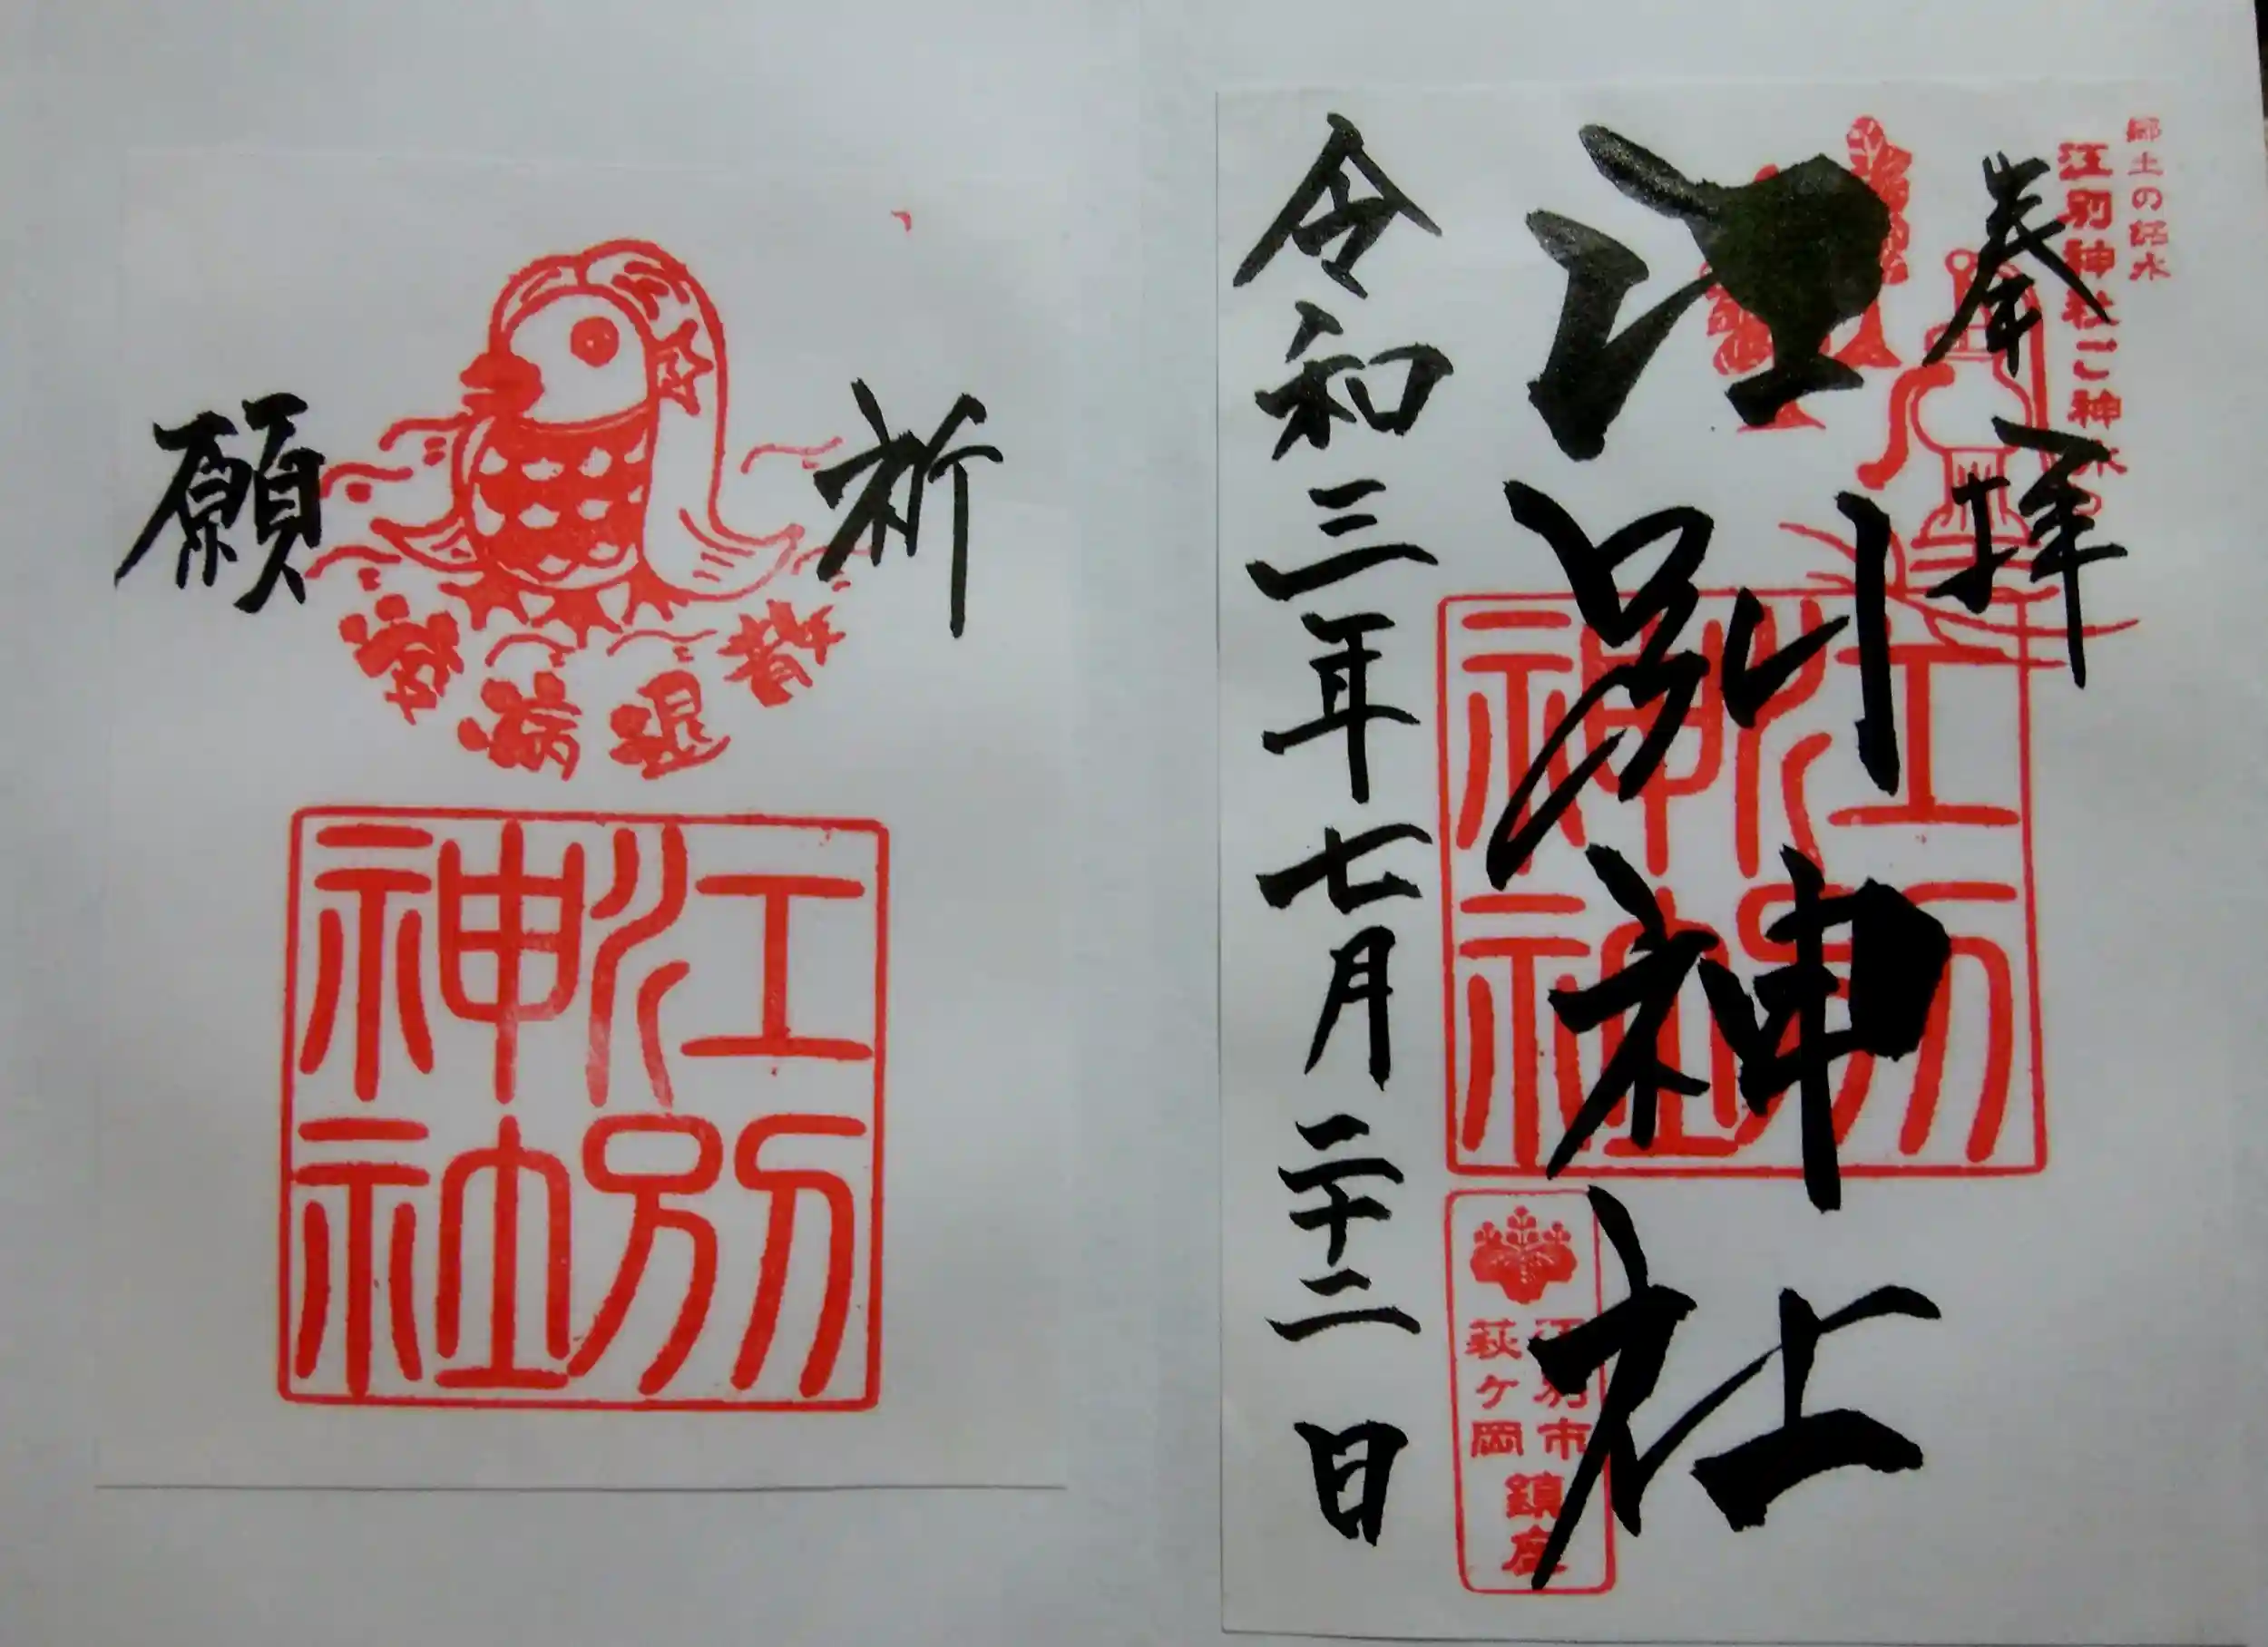 郷土の銘水
江別神社ご神水
奉拝
江別神社
江別神社
江別市
萩ヶ岡
鎮座
令和三年七月二十二日
祈願
疫病退散
江別神社